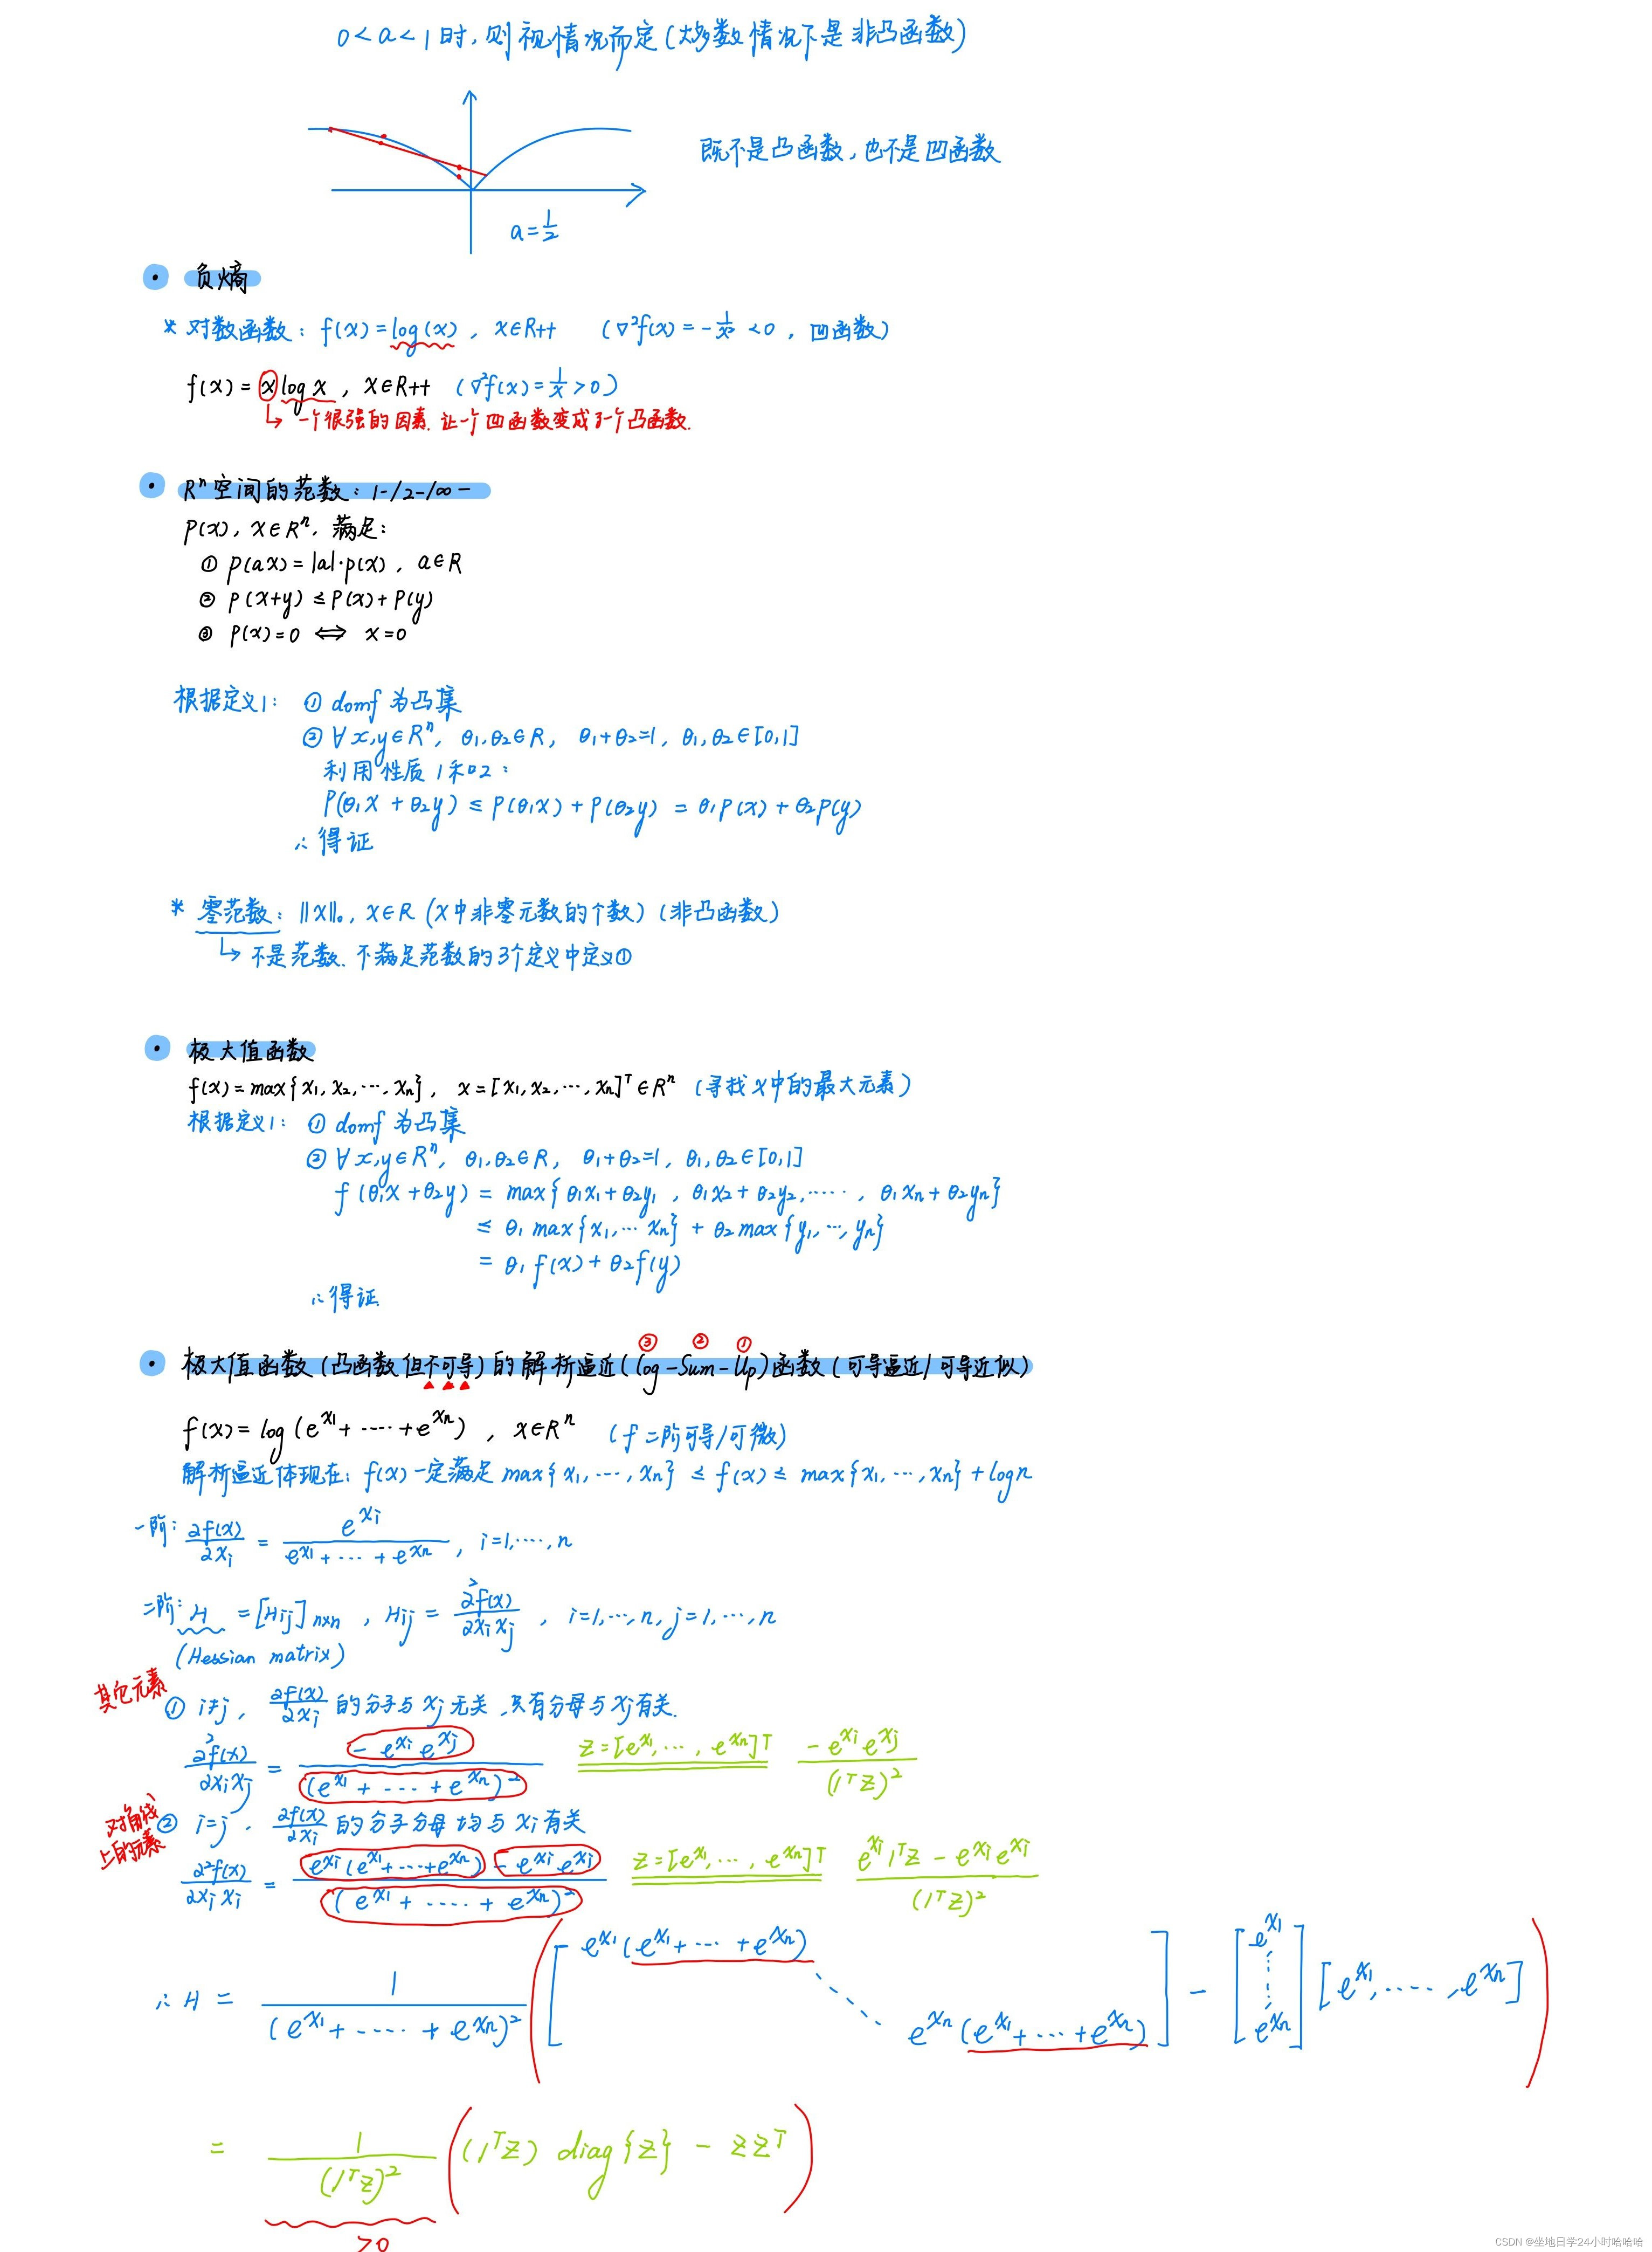 0<a<1时,则视情况而定(大多数情况下是非凸函数)
既不是凸函数,也不是凹函数
a=1/2
• 负熵
* 对数函数: f(x)=log(x), x∈R++ (∇²f(x)=-1/x²<0, 凹函数)
f(x)=xlogx, x∈R++ (∇²f(x)=1/x>0)
↳ 一个很强的因素.让一个凹函数变成了一个凸函数.
• Rⁿ空间的范数: 1-/2-/∞-
P(x), x∈Rⁿ, 满足:
① p(ax)=|a|·p(x), a∈R
② p(x+y)≤P(x)+P(y)
③ P(x)=0 ⟺ x=0
根据定义1: ① domf为凸集
② ∀x,y∈Rⁿ, θ₁,θ₂∈R, θ₁+θ₂=1, θ₁,θ₂∈[0,1]
利用性质1和2:
P(θ₁x+θ₂y)≤P(θ₁x)+P(θ₂y)=θ₁P(x)+θ₂P(y)
∴得证
* 零范数: ‖x‖₀, x∈R (x中非零元数的个数)(非凸函数)
↳ 不是范数.不满足范数的3个定义中定义①
• 极大值函数
f(x)=max{x₁,x₂,…,xₙ}, x=[x₁,x₂,…,xₙ]ᵀ∈Rⁿ (寻找x中的最大元素)
根据定义1: ① domf为凸集
② ∀x,y∈Rⁿ, θ₁,θ₂∈R, θ₁+θ₂=1, θ₁,θ₂∈[0,1]
f(θ₁x+θ₂y)=max{θ₁x₁+θ₂y₁, θ₁x₂+θ₂y₂,……, θ₁xₙ+θ₂yₙ}
≤ θ₁max{x₁,…xₙ}+θ₂max{y₁,…,yₙ}
= θ₁f(x)+θ₂f(y)
∴得证.
③ ② ①
• 极大值函数(凸函数但不可导)的解析逼近(log-Sum-Up)函数(可导逼近/可导近似)
f(x)=log(e^x₁+……+e^xₙ), x∈Rⁿ (f二阶可导/可微)
解析逼近体现在: f(x)一定满足max{x₁,…,xₙ}≤f(x)≤max{x₁,…,xₙ}+logn
一阶: ∂f(x)/∂xᵢ = e^xᵢ/(e^x₁+…+e^xₙ), i=1,……,n
二阶: H=[Hij]n×n, Hij=∂²f(x)/∂xᵢxⱼ, i=1,…,n, j=1,…,n
(Hessian matrix)
其它元素
① i≠j, ∂f(x)/∂xᵢ的分子与xⱼ无关,只有分母与xⱼ有关.
∂²f(x)/∂xᵢxⱼ = -e^xᵢe^xⱼ/(e^x₁+…+e^xₙ)² z=[e^x₁,…,e^xₙ]ᵀ -e^xᵢe^xⱼ/(1ᵀz)²
对角线上的元素
② i=j, ∂f(x)/∂xᵢ的分子分母均与xᵢ有关
∂²f(x)/∂xᵢxᵢ = (e^xᵢ(e^x₁+…+e^xₙ)-e^xᵢe^xᵢ)/(e^x₁+……+e^xₙ)² z=[e^x₁,…,e^xₙ]ᵀ (e^xᵢ1ᵀz-e^xᵢe^xᵢ)/(1ᵀz)²
∴H = 1/(e^x₁+……+e^xₙ)² ([e^x₁(e^x₁+…+e^xₙ) ⋱ e^xₙ(e^x₁+…+e^xₙ)] - [e^x₁ ⋮ e^xₙ][e^x₁,……,e^xₙ])
= 1/(1ᵀz)² ((1ᵀz)diag{z}-zzᵀ)
>0
CSDN @坐地日学24小时哈哈哈